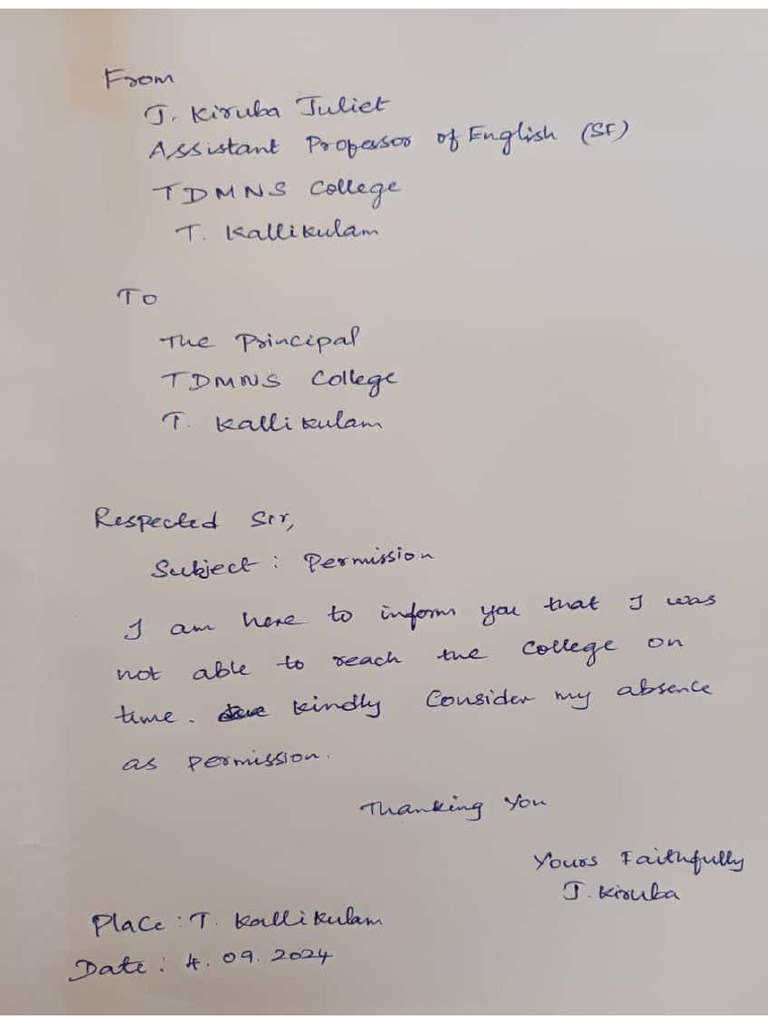 From
J. Kiruba Juliet
Assistant Professor of English (SF)
TDMNS College
T. Kallikulam
To
The Principal
TDMNS College
T. Kallikulam
Respected Sir,
Subject : Permission
I am here to inform you that I was
not able to reach the college on
time. kindly Consider my absence
as permission.
Thanking You
Yours Faithfully
J. Kiruba
Place : T. Kallikulam
Date : 4. 09. 2024